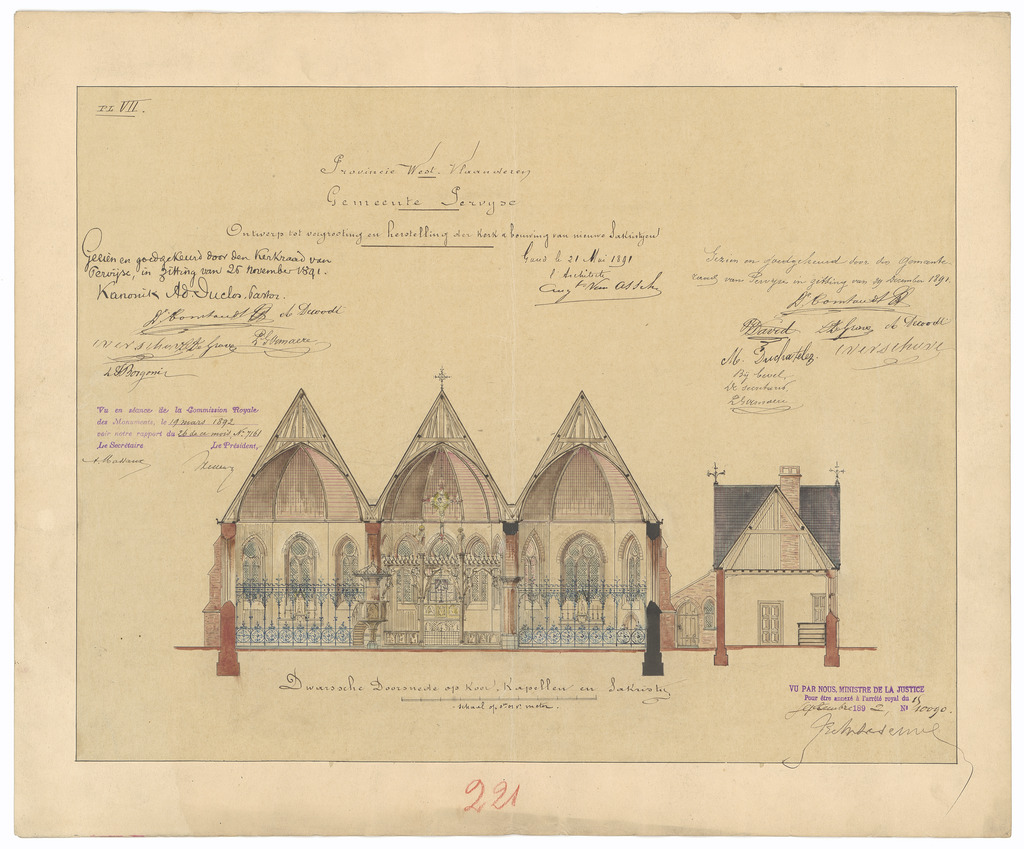 PL VII.
Provincie West-Vlaanderen
Gemeente Pervyse
Ontwerp tot vergrooting en herstelling der kerk & bouwing van nieuwe Sakristyen
Gezien en goedgekeurd door den Kerkraad van
Pervijse, in zitting van 25 November 1891.
Kanonik Ad. Duclos. Pastor.
Gand le 21 Mei 1891
l'Architecte
Augte Van Assche
Gezien en goedgekeurd door den Gemeente
raad van Pervyse in zitting van 29 December 1891.
M. Duchatelez
Bij bevel,
De secretaris,
Vu en séance de la Commission Royale
des Monuments, le 19 mars 1892
voir notre rapport du 26 de ce mois, N° 7161
Le Secrétaire Le Président,
A. Massaux
Dwarssche Doorsnede op Koor, Kapellen en Sakristy
schaal op meter.
VU PAR NOUS, MINISTRE DE LA JUSTICE
Pour être annexé à l'arrêté royal du 15
Septembre 1892, N° 10090.
221